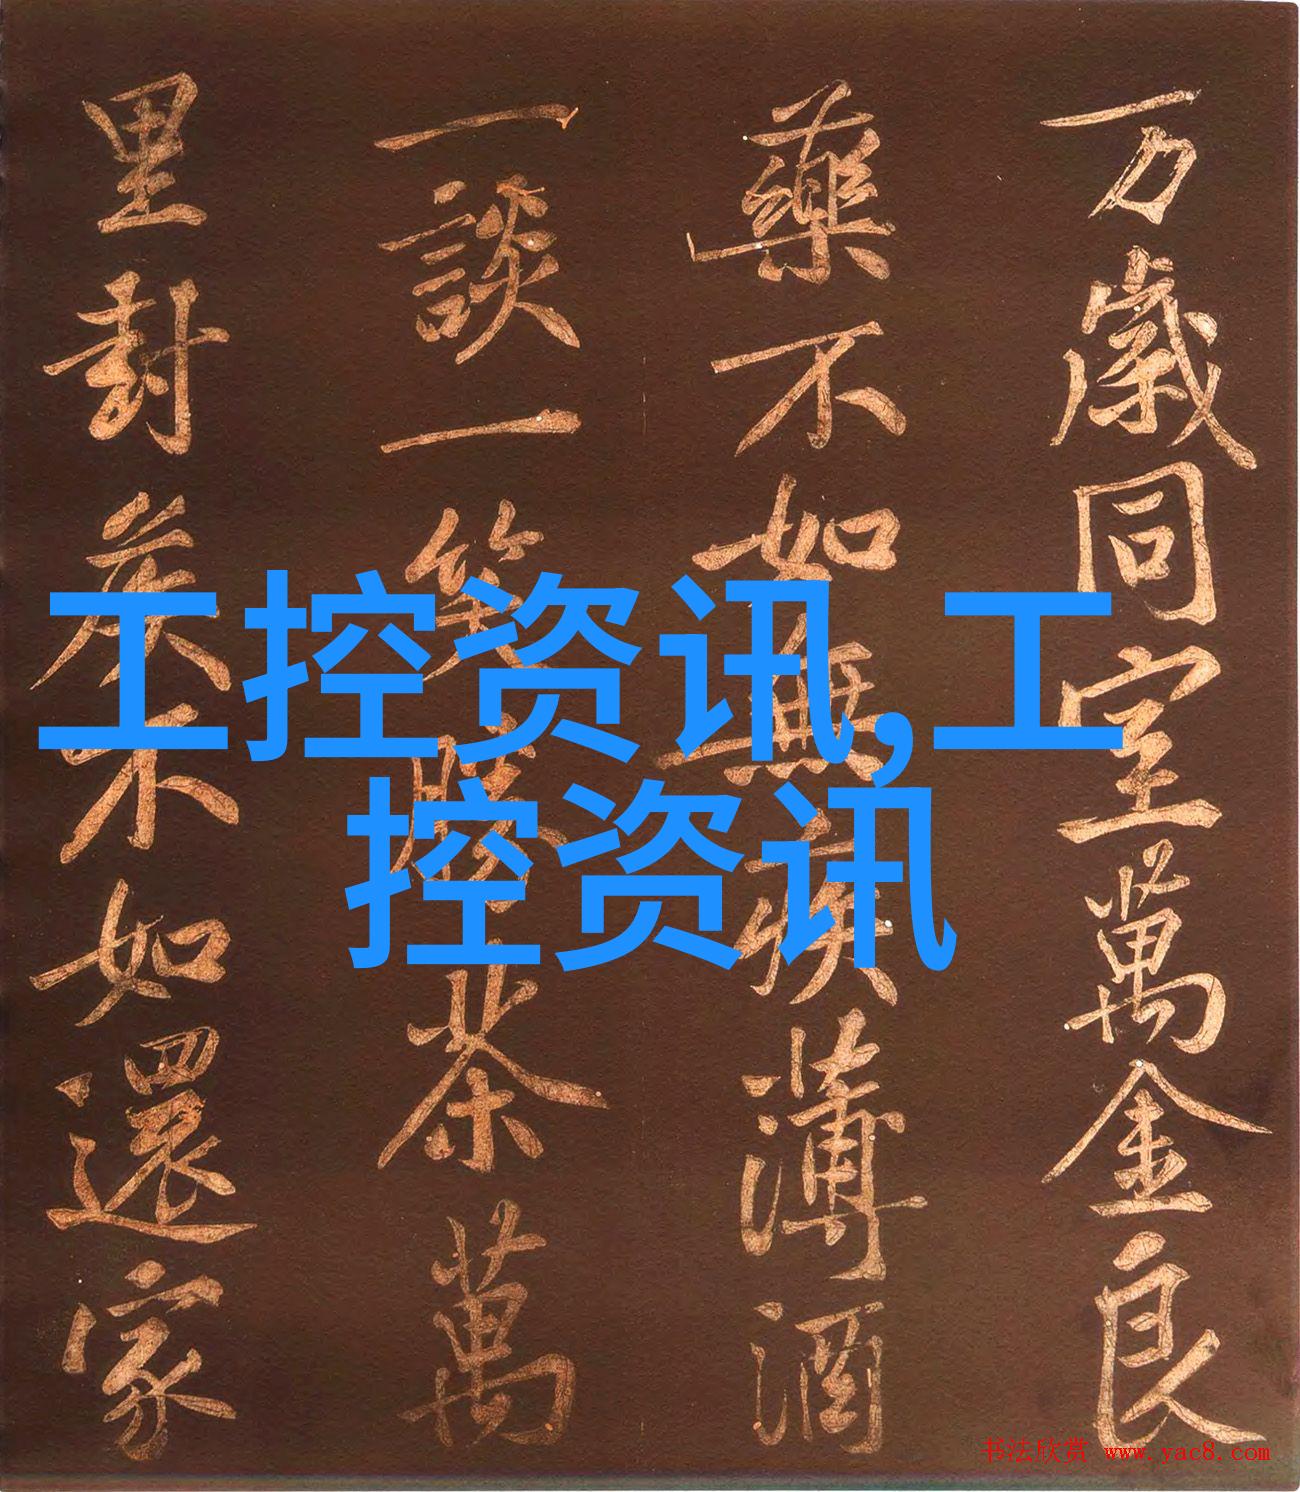 万歲同室萬金良
藥不如無疾薄酒
一談一笑勝茶萬
里封侯不如還家
工控资讯,工
控资讯
书法欣赏 www.yac8.com